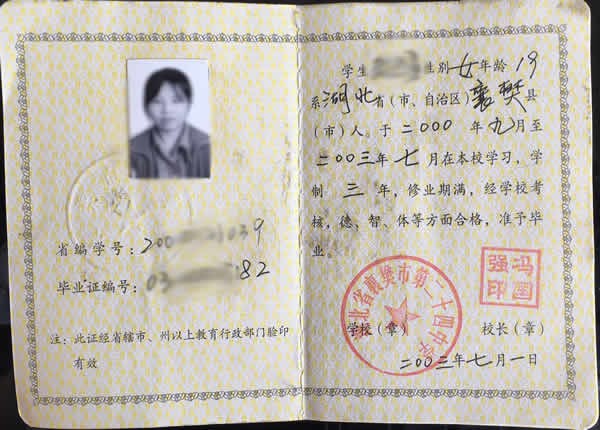 省编学号：200 039
毕业证编号：03 82
注：此证经省辖市、州以上教育行政部门验印
有效
学生 性别女年龄19
系湖北省（市、自治区）襄樊县
（市）人。于二000年九月至
二00三年七月在本校学习，学
制三年，修业期满，经学校考
核，德、智、体等方面合格，准予毕
业。
湖北省襄樊市第二十四中学
冯国强印
学校（章） 校长（章）
二00三年七月一日